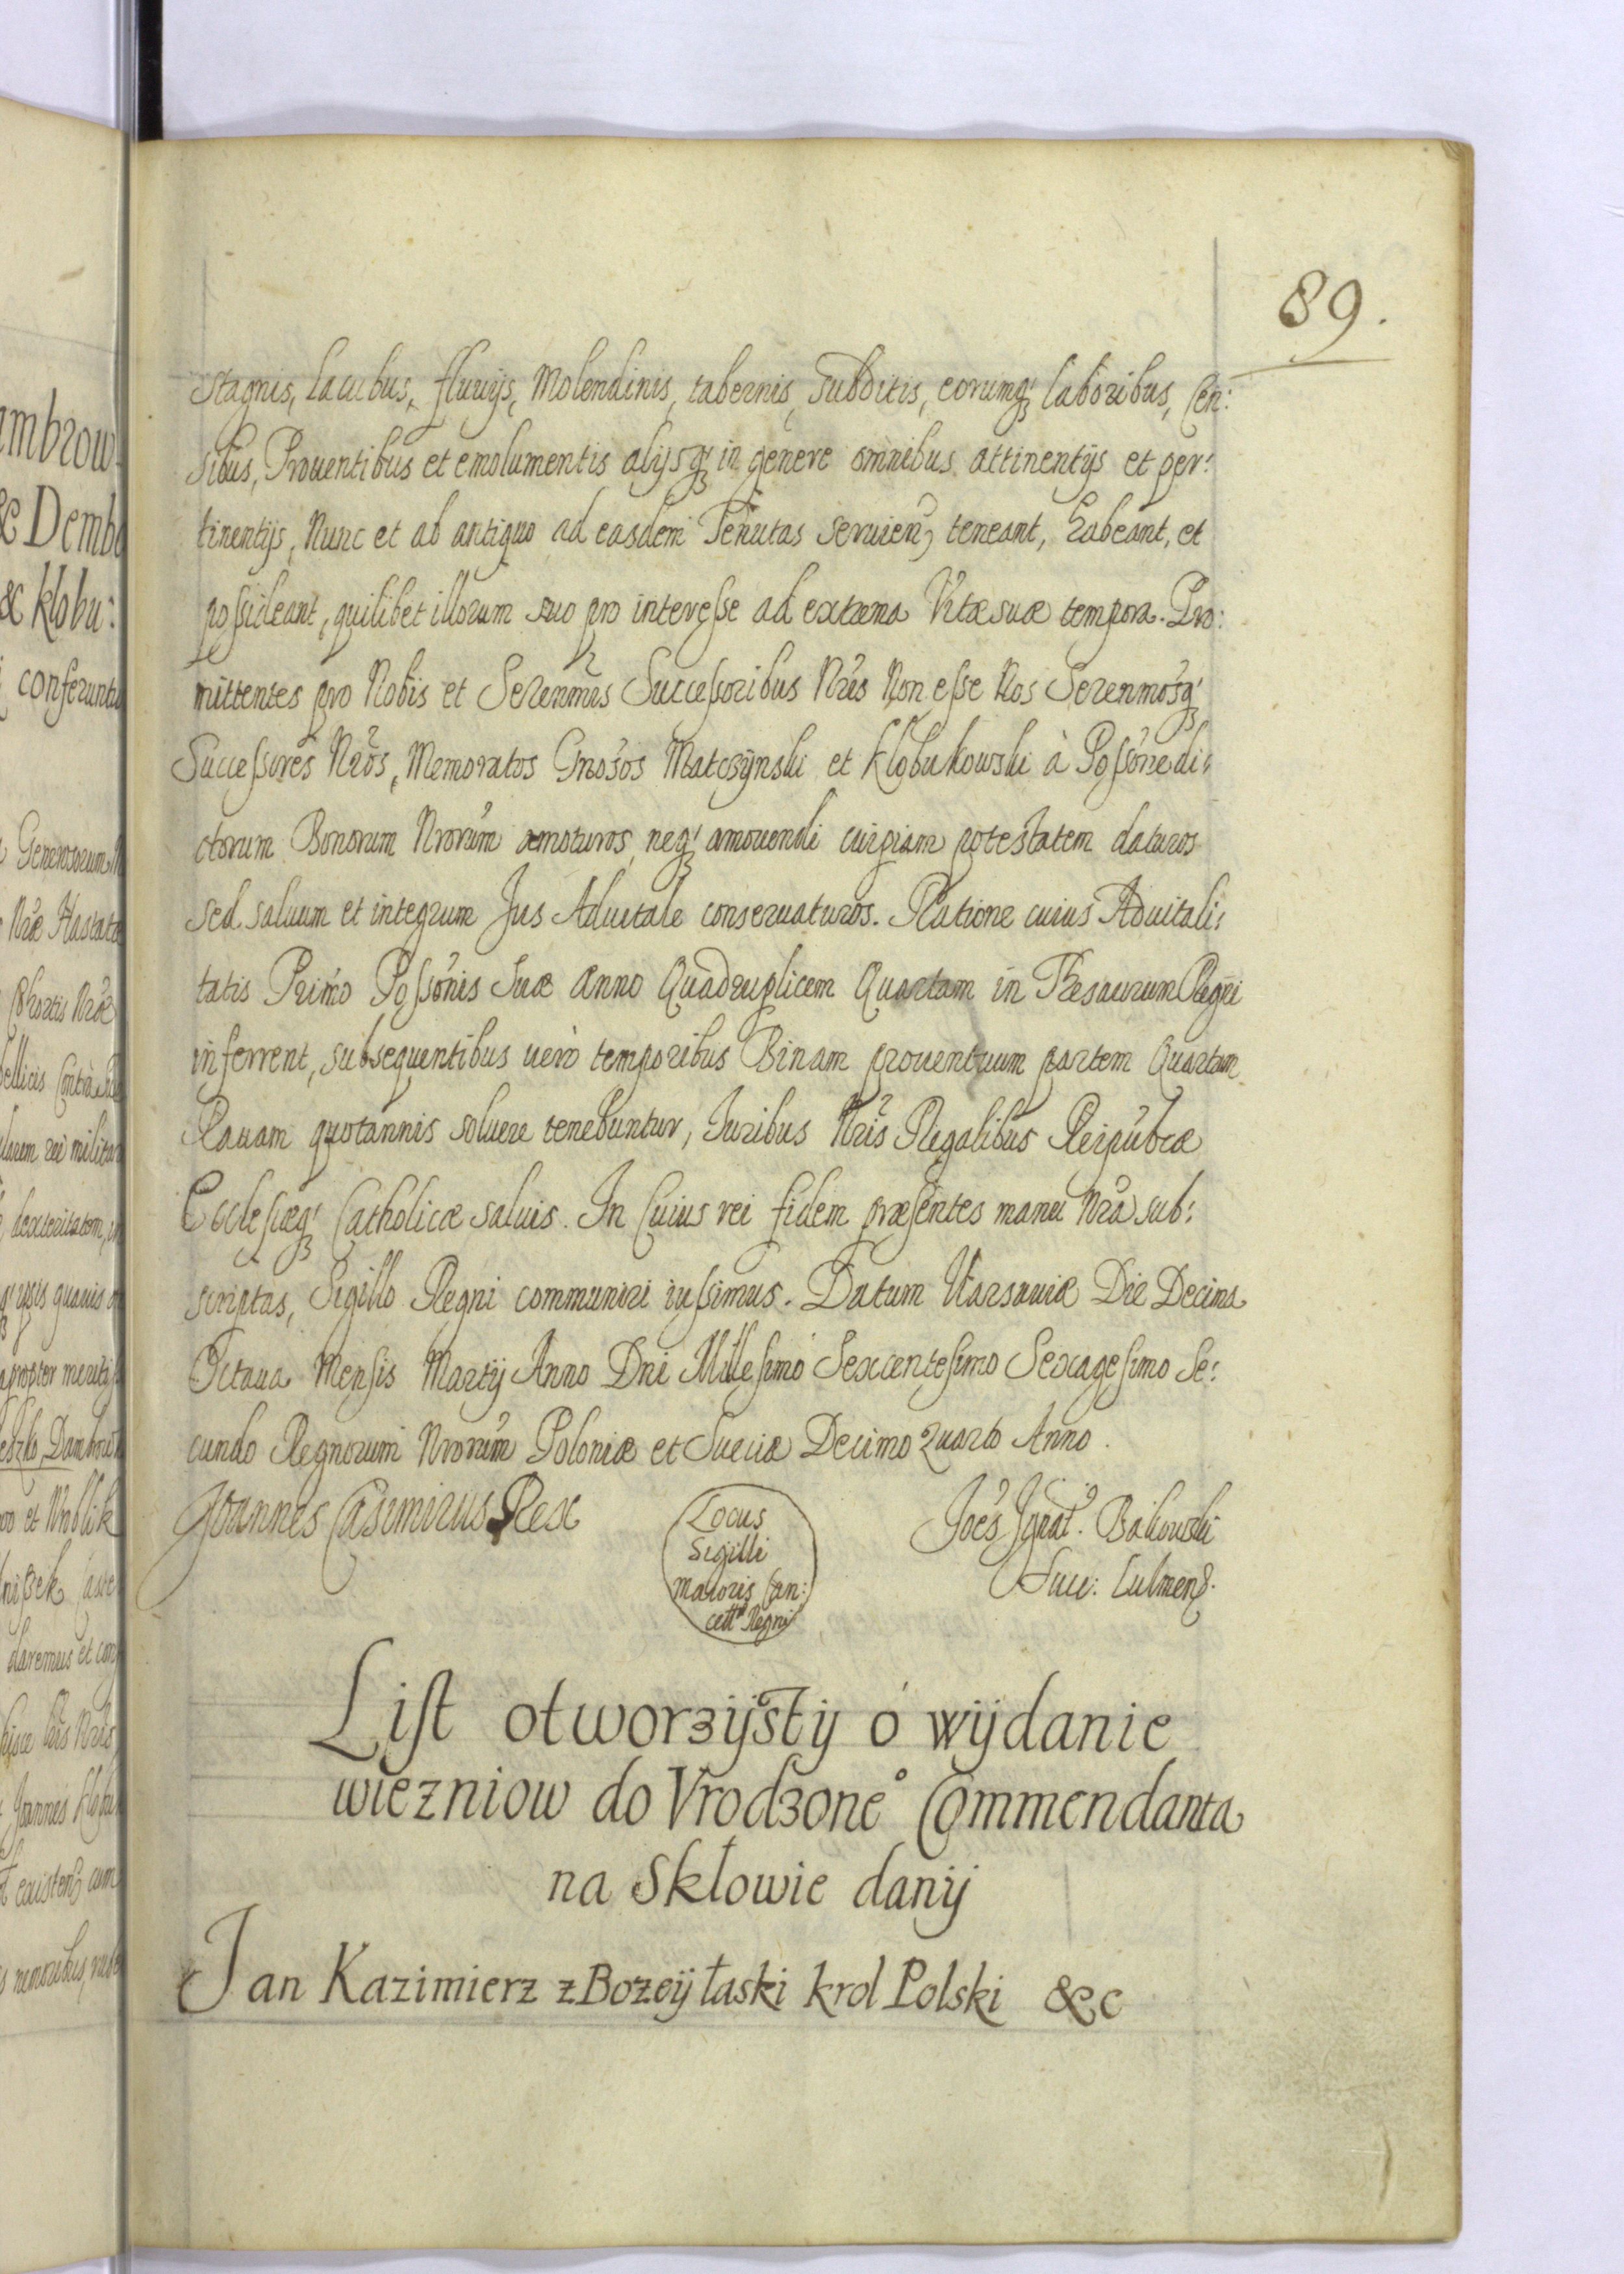 89.
Stagnis, Lacubus, fluuijs, Molendinis, tabernis, Subditis, eorumq; laboribus, Cen:
sibus, Prouentibus et emolumentis alijsq; in genere omnibus attinentijs et per:
tinentijs, Nunc et ab antiquo ad easdem Tenutas seruien, teneant, habeant, et
possideant, quilibet illorum suo pro interesse ad extrema Vitæ suæ tempora. Pro:
mittentes pro Nobis et Serenmis Successoribus Nris Non esse Nos Serenmosq;
Successores Nros, Memoratos Gnosos Matczynski et Klobukowski à Possone di:
ctorum Bonorum Nrorum amoturos, neq; amouendi cuipiam potestatem daturos
sed saluum et integrum Jus Aduitale conseruaturos. Ratione cuius Aduitali:
tatis Primo Possonis Suæ Anno Quadruplicem Quartam in Thesaurum Regni
inferrent, subsequentibus uero temporibus Binam prouentuum partem Quartam
Rauam quotannis soluere tenebuntur, Iuribus Nris Regalibus Reipubcæ
Ecclesiæq; Catholicæ saluis. In Cuius rei fidem præsentes manu Nra sub:
scriptas, Sigillo Regni communiri iussimus. Datum Varsauiæ Die Decima
Octaua Mensis Martij Anno Dni Millesimo Sexcentesimo Sexagesimo Se:
cundo Regnorum Nrorum Poloniæ et Sueciæ Decimo Quarto Anno.
Joannes Casimirus Rex
Locus
Sigilli
maioris Can:
cell Regni
Joes Ignat. Bakowski
Succ: Culmens.
List otworzÿstÿ o wÿdanie
wiezniow do Vrodzone° Commendanta
na Skłowie danÿ
Jan Kazimierz z Bozeÿ łaski krol Polski &c